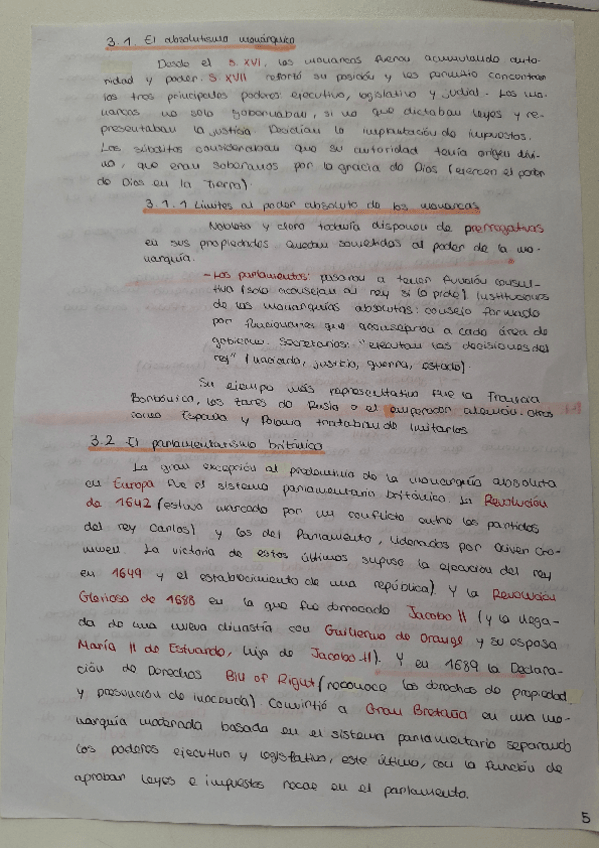 3.1. El absolutismo monárquico
Desde el S XVI, los monarcas fueron acumulando auto-
ridad y poder. S XVII reforzó su posición y les permitió concentrar
los tres principales poderes: ejecutivo, legislativo y judicial. Los mo-
narcas no solo gobernaban, si no que dictaban leyes y re-
presentaban la justicia. Decidían la implantación de impuestos.
Los súbditos consideraban que su autoridad tenía origen divi-
no, que eran soberanos por la gracia de Dios (ejercen el poder
de Dios en la Tierra).
3.1.1 Límites al poder absoluto de los monarcas
Nobleza y clero todavía disponen de prerrogativas
en sus propiedades quedan sometidas al poder de la mo-
narquía.
- Los parlamentos: pasaron a tener función consul-
tiva (solo aconsejan al rey si lo pide) Instituciones
de las monarquías absolutas: consejo formado
por funcionarios que aconsejan a cada área de
gobierno. Secretarios: "ejecutan las decisiones del
rey" (hacienda, justicia, guerra, estado).
Su ejemplo más representativo fue la Francia
Borbónica, los zares de Rusia o el emperador alemán. Otros
como España y Polonia trataban de imitarlos
3.2 El parlamentarismo británico
La gran excepción al predominio de la monarquía absoluta
en Europa fue el sistema parlamentario británico. La Revolución
de 1642 (estuvo marcado por un conflicto entre los partidos
del rey Carlos I y los del Parlamento, liderados por Oliver Cro-
mwell. La victoria de estos últimos supuso la ejecución del rey
en 1649 y el establecimiento de una república). Y la Revolución
Gloriosa de 1688 en la que fue derrocado Jacobo II (y la llega-
da de una nueva dinastía con Guillermo de Orange y su esposa
María II de Estuardo, hija de Jacobo II). Y en 1689 la Declara-
ción de Derechos Bill of Right (reconoce los derechos de propiedad
y presunción de inocencia). Convirtió a Gran Bretaña en una mo-
narquía moderada basada en el sistema parlamentario separando
los poderes ejecutivo y legislativo, este último, con la función de
aprobar leyes e impuestos recae en el parlamento.
5